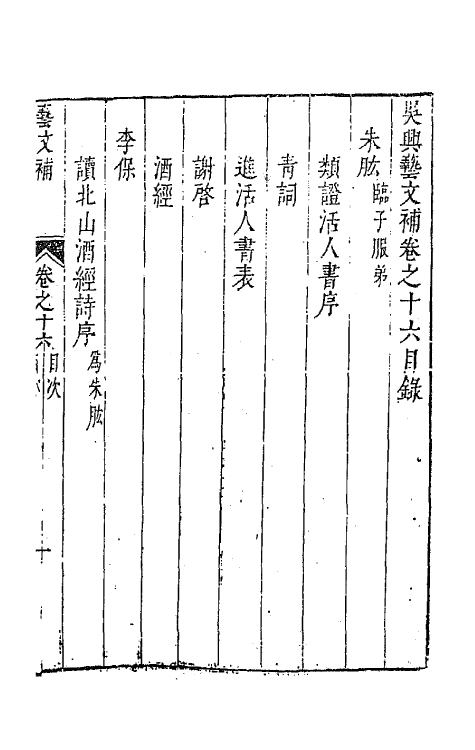 吳興藝文補卷之十六目錄
朱肱臨子服弟
類證活人書序
青詞
進活人書表
謝啓
酒經
李保
讀北山酒經詩序爲朱肱
藝文補
卷之十六目次